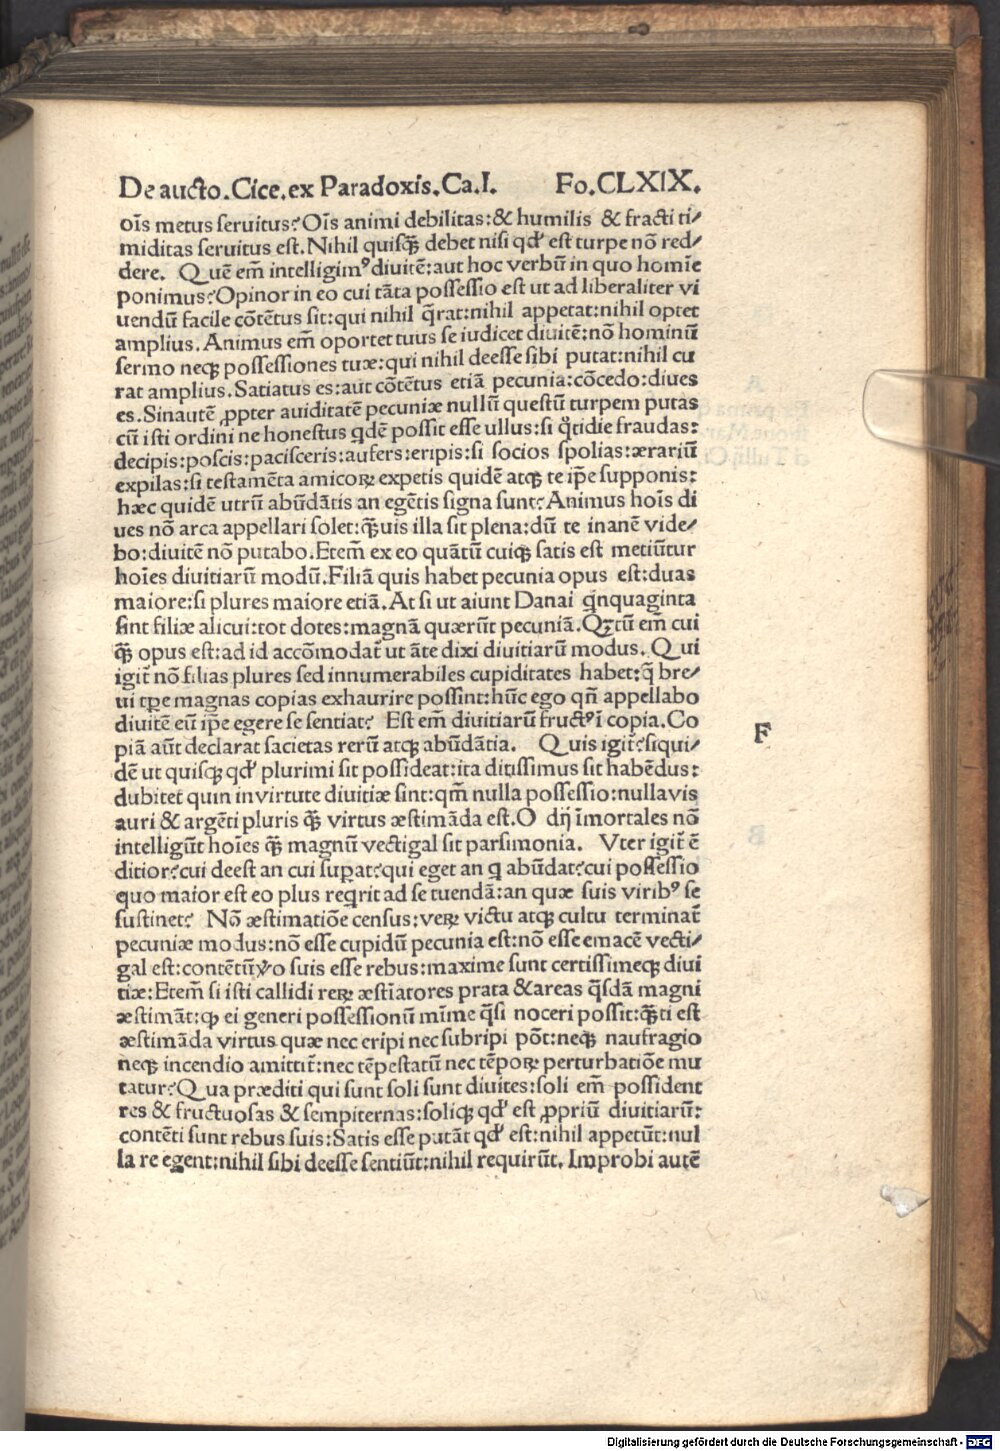 De aucto.Cice.ex Paradoxis.Ca.I. Fo.CLXIX.
oīs metus seruitus?Oīs animi debilitas:& humilis & fracti ti/
miditas seruitus est.Nihil quisq̃ debet nisi qđ est turpe nō red/
dere. Quē em̄ intelligimꝰ diuitē:aut hoc verbū in quo homīe
ponimus?Opinor in eo cui tāta possessio est ut ad liberaliter vi
uendū facile cōtētus sit:qui nihil q̄rat:nihil appetat:nihil optet
amplius.Animus em̄ oportet tuus se iudicet diuitē:nō hominū
sermo neqꝫ possessiones tuæ:qui nihil deesse sibi putat:nihil cu
rat amplius.Satiatus es:aut cōtētus etiā pecunia:cōcedo:diues
es.Sinautē ꝓpter auiditatē pecuniæ nullū questū turpem putas
cū isti ordini ne honestus qdē possit esse ullus:si q̄tidie fraudas:
decipis:poscis:pacisceris:aufers:eripis:si socios spolias:ærariū
expilas:si testamēta amicoꝝ expetis quidē atqꝫ te ip̄e supponis:
hæc quidē utrū abūdātis an egētis signa sunt?Animus hoīs di
ues nō arca appellari solet:q̃uis illa sit plena:dū te inanē vide/
bo:diuitē nō putabo.Etem̄ ex eo quātū cuiqꝫ satis est metiūtur
hoīes diuitiarū modū.Filiā quis habet pecunia opus est:duas
maiore:si plures maiore etiā.At si ut aiunt Danai qnquaginta
sint filiæ alicui:tot dotes:magnā quærūt pecuniā.Qꝫtū em̄ cui
q̃ opus est:ad id accōmodat̄ ut āte dixi diuitiarū modus.Qui
igit̄ nō filias plures sed innumerabiles cupiditates habet:q̄ bre/
ui tp̄e magnas copias exhaurire possint:hūc ego qñ appellabo
diuitē eū ip̄e egere se sentiat? Est em̄ diuitiarū fructꝰ ī copia.Co
piā aūt declarat sacietas rerū atqꝫ abūdātia. Quis igit̄?siqui/
dē ut quisqꝫ qđ plurimi sit possideat:ita ditissimus sit habēdus:
dubitet quin in virtute diuitiæ sint:qm̄ nulla possessio:nulla vis
auri & argēti pluris q̃ virtus æstimāda est.O dij īmortales nō
intelligūt hoīes q̃ magnū vectigal sit parsimonia. Vter igit̄ ē
ditior?cui deest an cui suꝑat?qui eget an q abūdat?cui possessio
quo maior est eo plus reqrit ad se tuendā:an quæ suis viribꝰ se
sustinet? Nō æstimatiōe census:veꝝ victu atqꝫ cultu terminat̄
pecuniæ modus:nō esse cupidū pecunia est:nō esse emacē vecti/
gal est:contētū ꝟo suis esse rebus:maxime sunt certissimeqꝫ diui
tiæ:Etem̄ si isti callidi reꝝ æstīatores prata & areas q̄sdā magni
æstimāt:ꝙ ei generi possessionū mīme q̄si noceri possit:q̃ti est
æstimāda virtus quæ nec eripi nec subripi pōt:neqꝫ naufragio
neqꝫ incendio amittit̄:nec tēpestatū nec tēpoꝝ perturbatiōe mu
tatur?Qua præditi qui sunt soli sunt diuites:soli em̄ possident
res & fructuosas & sempiternas:soliqꝫ qđ est ꝓpriū diuitiarū:
contēti sunt rebus suis:Satis esse putāt qđ est:nihil appetūt:nul
la re egent:nihil sibi deesse sentiūt:nihil requirūt.Improbi autē
F
Digitalisierung gefördert durch die Deutsche Forschungsgemeinschaft - DFG